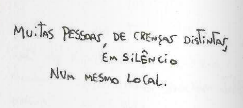 MUITAS PESSOAS, DE CRENÇAS DISTINTAS,
EM SILÊNCIO
NUM MESMO LOCAL.